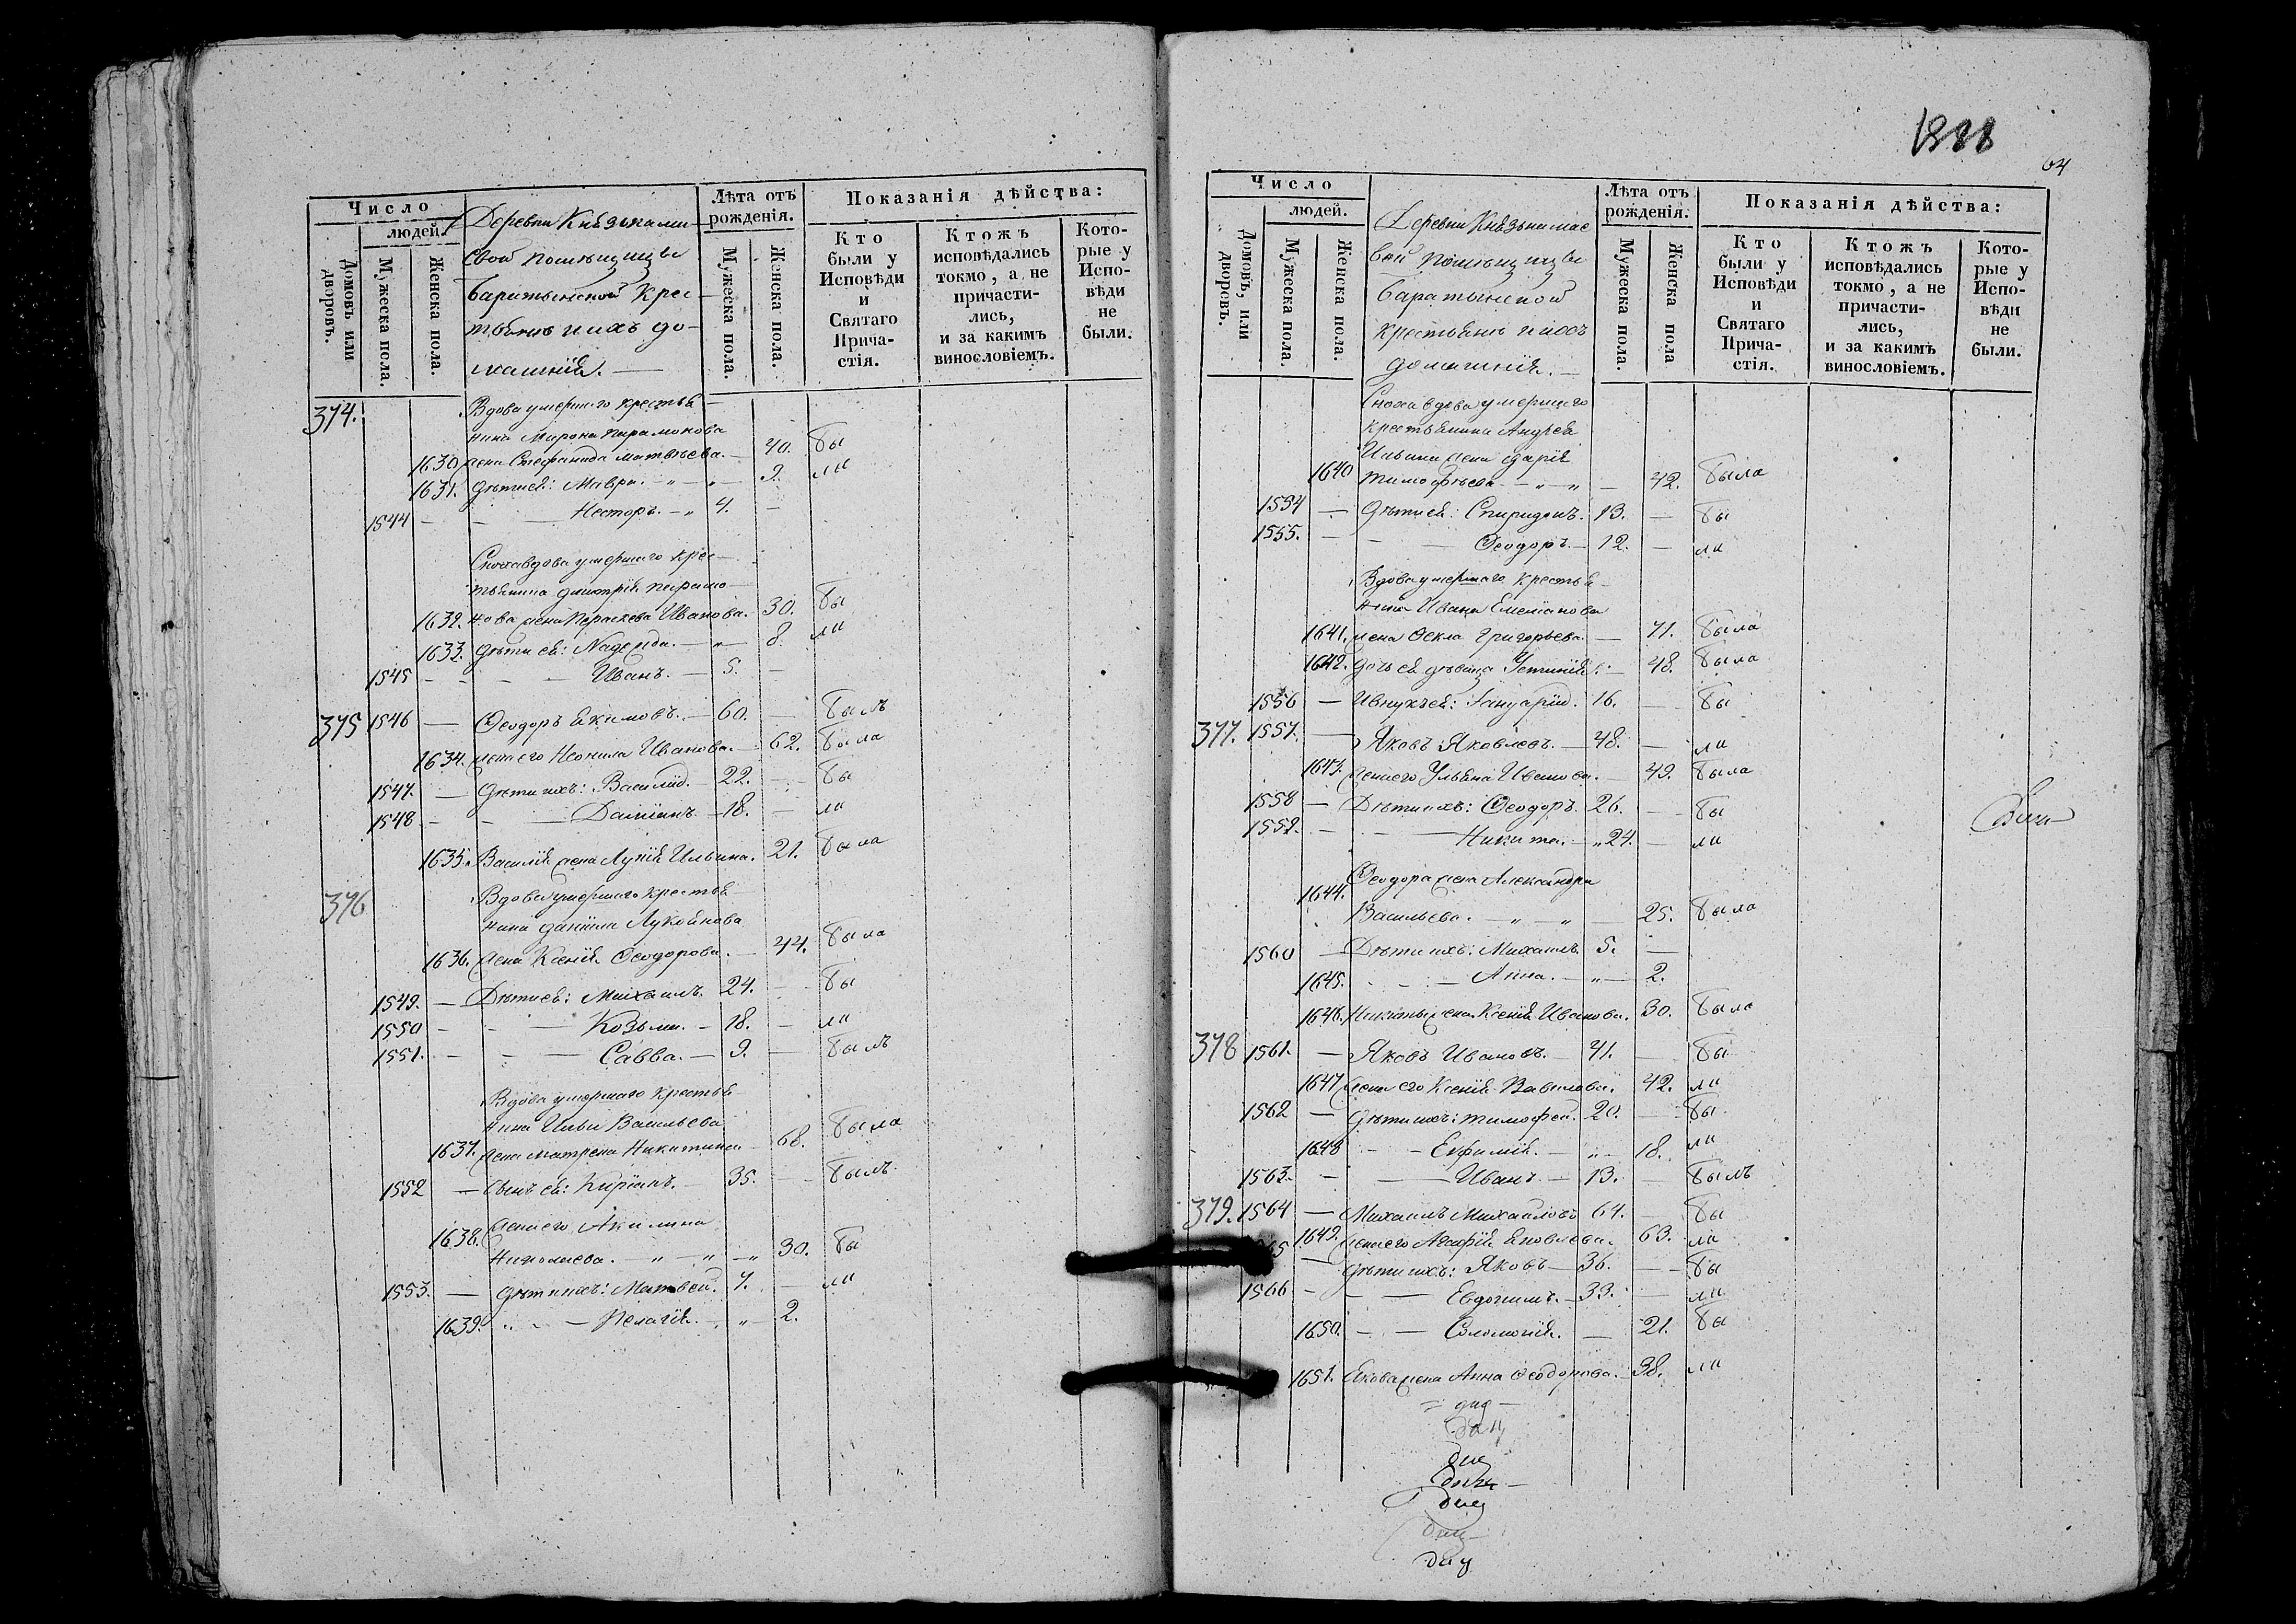 Число
людей.
Домовъ или дворовъ.
Мужеска пола.
Женска пола.
Деревни Князьками-
свой помѣщицы
Баратынской Крес-
тьяне и ихъ до-
машнія. —
Лѣта отъ рожденія.
Мужеска пола.
Женска пола.
Показанія дѣйства:
Кто были у Исповѣди и Святаго Прича-стія.
Ктожъ исповѣдались токмо, а не причасти-лись, и за какимъ винословіемъ.
Кото-рые у Испо-вѣди не были.
374. Вдова умершаго крестья-
нина Мирона Парамонова
1630. жена Стефанида Матвѣева. — 40. бы
1631. дѣти ея: Мавра. — „ — 9. ли
1544 — Несторъ. — „ 4. —
Сноха вдова умершаго крес-
тьянина Дмитрія Парамо-
1632. нова жена Параскева Иванова. 30. бы
1633. дѣти ея: Надежда. — „ — 8. ли
1545 — Иванъ. — 5. —
375 1546 — Ѳеодоръ Екимовъ. — 60. — былъ
1634. жена его Неонила Иванова. — 62. была
1547. — дѣти ихъ: Василій. — 22. — бы
1548 — Даміанъ — 18. — ли
1635. Василія жена Лукія Ильина. 21. была
376 Вдова умершаго крестья-
нина Даніила Лукоянова
1636. жена Ксенія Ѳеодорова. — 44. была
1549. — Дѣти ея: Михаилъ. 24. — бы
1550 — Козьма. — 18. — ли
1551. — Савва. — 9. — былъ
Вдова умершаго крестья-
нина Ильи Васильева
1637. жена Матрена Никитина — 68. была
1552 — сынъ ея: Киріанъ. — 35. — былъ
1638. жена его Акилина
Николаева. — „ — „ — 30. бы
1553. — дѣти ихъ: Матвей. 7. — ли
1639. — Пелагія. — „ — 2.
1838
64
Число
людей.
Домовъ, или дворовъ.
Мужеска пола.
Женска пола.
Деревни Князькамас
вой помѣщицы
Баратынской
Крестьяне и ихъ
домашнія. —
Лѣта отъ рожденія.
Мужеска пола.
Женска пола
Показанія дѣйства:
Кто были у Исповѣди и Святаго Прича-стія.
Ктожъ исповѣдались токмо, а не причасти-лись, и за какимъ винословіемъ.
Кото-рые у Испо-вѣди не были.
Сноха вдова умершаго
крестьянина Андрея
Ильина жена Дарія
1640 Тимофѣева — „ — „ — 42. была
1554 — Дѣти ея: Спиридонъ. 13. — бы
1555. — Ѳеодоръ. — 12. — ли
Вдова умершаго крестья-
нина Ивана Емеліанова
1641. жена Ѳекла Григорьева. — 71. была
1642. дочь ея дѣвица Устинія. — 48. была
1556 — Внукъ ея: Іануарій. 16. — бы
377. 1557. — Яковъ Яковлевъ. — 48. — ли
1643. жена его Ульяна Иванова. — 49. была
1558 — Дѣти ихъ: Ѳеодоръ. 26. — бы
1559. — Никита. — „ 24. — ли
1644. Ѳеодора жена Александра
Васильева. — „ — „ — 25. была
1560 — Дѣти ихъ: Михаилъ 5. —
1645. — Анна. — „ — 2.
1646. Никиты жена Ксенія Иванова. 30. была
378 1561. — Яковъ Ивановъ. — 41. — бы
1647 жена его Ксенія Вавилова. 42. ли
1562 — дѣти ихъ: Тимофей. 20. — бы
1648 — Евфимія. — „ — 18. ли
1563. — Иванъ — 13. — былъ
379. 1564 — Михаилъ Михайловъ 64. — бы
1649. жена его Агафія Яковлева. 63. ли
— дѣти ихъ: Яковъ — 36. — бы
1566 — Евдокимъ. — 33. — ли
1650. — Соломонія. — 21. бы
1651. Якова жена Анна Ѳеодорова. 38. ли